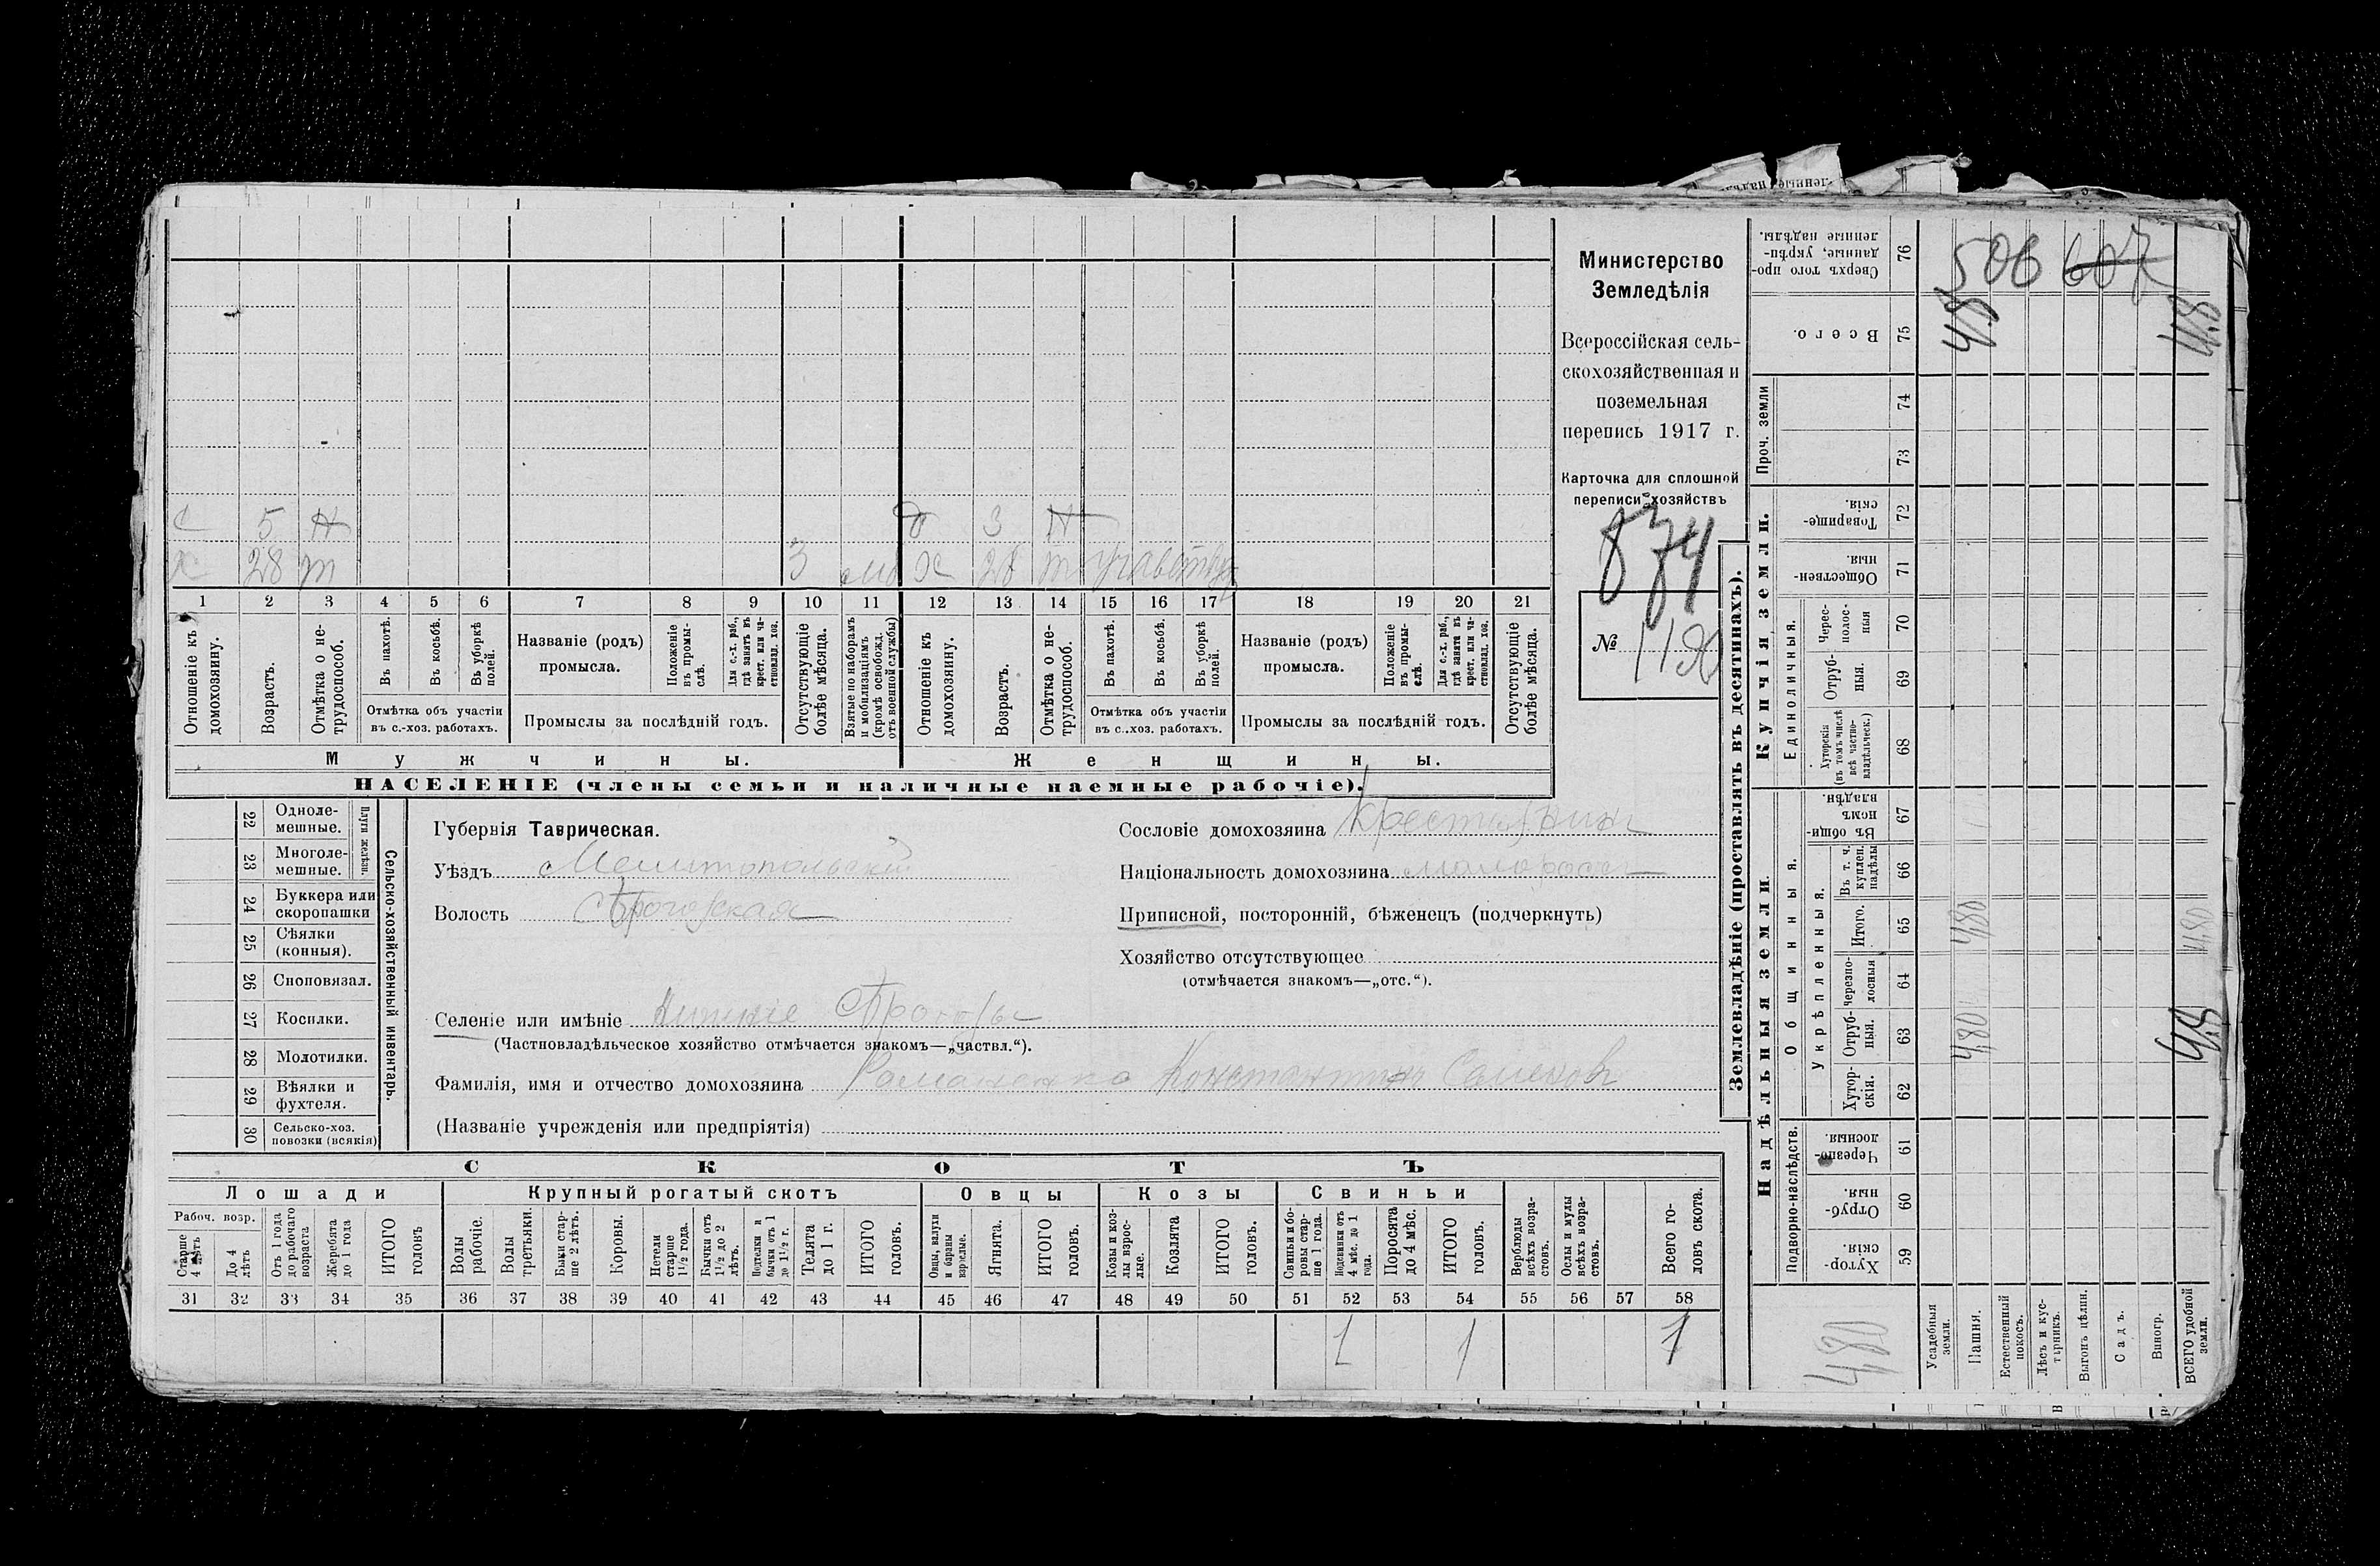 Министерство
Земледѣлія
Всероссійская сель-
скохозяйственная и
поземельная
перепись 1917 г.
Карточка для сплошной
переписи хозяйствъ
874
№ 119
с 5 Н д 3 Н
х 28 т 3 х 28 т участву
1 2 3 4 5 6 7 8 9 10 11 12 13 14 15 16 17 18 19 20 21
Отношеніе къ домохозяину.
Возрастъ.
Отмѣтка о не-трудоспособ.
Въ пахотѣ.
Въ косьбѣ.
Въ уборкѣ полей.
Отмѣтка объ участіи въ с.-хоз. работахъ.
Названіе (родъ) промысла.
Положеніе въ промы-слѣ.
Для с.-х. раб., гдѣ занятъ въ крест. или ча-стновлад. хоз.
Промыслы за послѣдній годъ.
Отсутствующіе болѣе мѣсяца.
Взятые по наборамъ и мобилизаціямъ (кромѣ освобожд. отъ военной службы)
Отношеніе къ домохозяину.
Возрастъ.
Отмѣтка о не-трудоспособ.
Въ пахотѣ.
Въ косьбѣ.
Въ уборкѣ полей.
Отмѣтка объ участіи въ с.-хоз. работахъ.
Названіе (родъ) промысла.
Положеніе въ промы-слѣ.
Для с.-х. раб., гдѣ занята въ крест. или ча-стновлад. хоз.
Промыслы за послѣдній годъ.
Отсутствующіе болѣе мѣсяца.
Мужчины. Женщины.
НАСЕЛЕНІЕ (члены семьи и наличные наемные рабочіе).
22 Одноле-мешные.
23 Многоле-мешные.
Плуги желѣзн.
24 Буккера или скоропашки
25 Сѣялки (конныя).
26 Сноповязал.
27 Косилки.
28 Молотилки.
29 Вѣялки и фухтеля.
30 Сельско-хоз. повозки (всякія)
Сельско-хозяйственный инвентарь.
Губернія Таврическая.
Уѣздъ Мелитопольскій
Волость Сѣрогозская
Селеніе или имѣніе Нижніе Сѣрогозы
(Частновладѣльческое хозяйство отмѣчается знакомъ—„частвл.“).
Фамилія, имя и отчество домохозяина Романенко Константинъ Семеновъ
(Названіе учрежденія или предпріятія)
Сословіе домохозяина Крестьянин
Національность домохозяина малоросс
Приписной, посторонній, бѣженецъ (подчеркнуть)
Хозяйство отсутствующее
(отмѣчается знакомъ—„отс.“).
СКОТЪ
Лошади Крупный рогатый скотъ Овцы Козы Свиньи
Рабоч. возр.
Старше 4 лѣтъ
До 4 лѣтъ
Отъ 1 года до рабочаго возраста
Жеребята до 1 года
ИТОГО головъ
Волы рабочіе.
Волы третьяки.
Быки стар-ше 2 лѣтъ.
Коровы.
Нетели старше 1½ года.
Бычки отъ 1½ до 2 лѣтъ.
Подтелки и бычки отъ 1 до 1½ г.
Телята до 1 г.
ИТОГО головъ.
Овцы, валухи и бараны взрослые.
Ягнята.
ИТОГО головъ.
Козы и коз-лы взрос-лые.
Козлята
ИТОГО головъ.
Свиньи и бо-ровы стар-ше 1 года.
Подсвинки отъ 4 мѣс. до 1 года.
Поросята до 4 мѣс.
ИТОГО головъ.
Верблюды всѣхъ возра-стовъ.
Ослы и мулы всѣхъ возра-стовъ.
Всего го-ловъ скота.
31 32 33 34 35 36 37 38 39 40 41 42 43 44 45 46 47 48 49 50 51 52 53 54 55 56 57 58
1 1 1
Землевладѣніе (проставлять въ десятинахъ).
Надѣльныя земли
Купчія земли.
Проч. земли
Подворно-наслѣдств.
Общинныя.
Укрѣпленныя.
Единоличныя.
Хутор-скія. 59
Отруб-ныя. 60
Черезпо-лосныя. 61
Хутор-скія. 62
Отруб-ныя. 63
Черезпо-лосныя 64
Итого. 65
Въ т. ч. куплен. надѣлы 66
Въ общи-номъ владѣн. 67
Хуторскія (въ томъ числѣ всѣ частно-владѣльческ.) 68
Отруб-ныя. 69
Черес-полос-ныя 70
Обществен-ныя. 71
Товарище-скія. 72
73
74
Всего. 75
Сверхъ того про-данные, укрѣп-ленные надѣлы. 76
506 607
4,8 4,8
4,80 4,80
4,80 4,8
4,80
Усадебныя земли.
Пашня.
Естественный покосъ.
Лѣсъ и кус-тарникъ.
Выгонъ цѣлин.
Садъ.
Виногр.
ВСЕГО удобной земли.